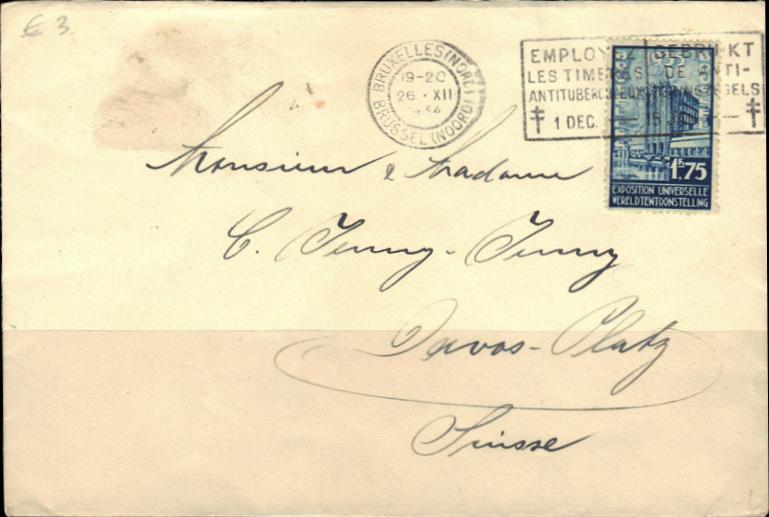 € 3
BRUXELLES (NORD)
19-20
26 · XII
1934
BRUSSEL (NOORD)
EMPLOYEZ GEBRUIKT
LES TIMBRES DE ANTI-
ANTITUBERCULEUX
1 DEC. 15
1F.75
EXPOSITION UNIVERSELLE
WERELDTENTOONSTELLING
Monsieur & Madame
C. Jenny-Jenny
Davos-Platz
Suisse